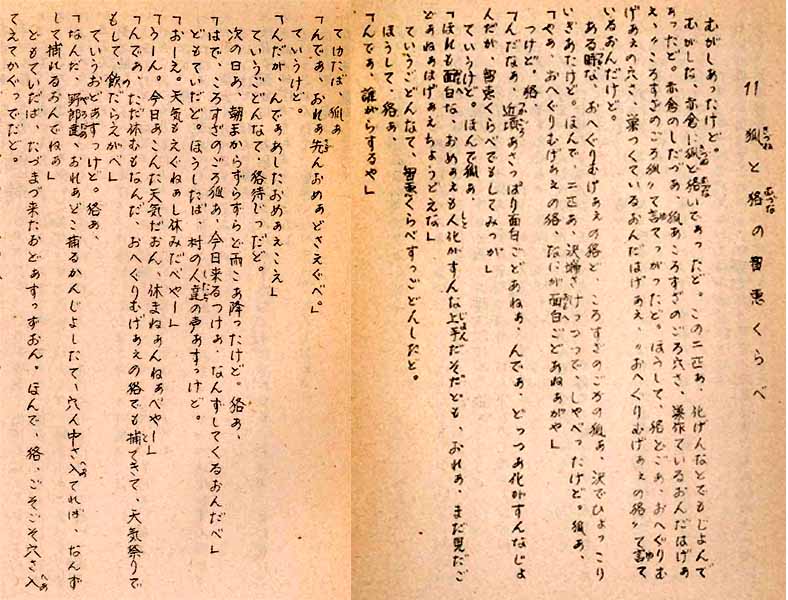 11 狐と狢の智恵くらべ
むがしあったけど。
むがしだ、赤倉に狐ど狢いであったど。この二匹あ、化げんなとでもじよんで
あったど。赤倉のしだづあ、狐あころすぎのごろ穴さ、巣作ているおんだはげぁ
え、〝ころすぎのごろ狐〟て言てっがったど。ほうして、狢どごあ、おへぐりむ
げあえの穴さ、巣つくているおんだはげあえ、〝おへぐりむげあえの狢〟て言て
いるおんだけど。
ある時な、おへぐりむげあえの狢ど、ころすぎのごろの狐あ、沢でひょっこり
いぎあたけど。ほんで、二匹あ、沢端さけっつつで、しゃべったけど。狐あ、
「やぁ、おへぐりむげあえの狢、なにが面白ごどあねぁがや」
つけど。狢、
「んだなぁ、近頃あさっぱり面白ごどあねぁ、んでぁ、どっつあ化がすんなじょ
んだが、智恵くらべでもしてみっが」
ていうけど。ほんで狐あ、
「ほれも面白な、おめぁえも人化がすんな上手だそだども、おれぁ、まだ見だご
どあねぁはげあえちょうどえな」
ていうごどんなて、智恵くらべすっごどんしたど。
ほうして、狢あ、
「んでぁ、誰がらするや」
てゆたば、狐あ
「んでぁ、おれぁ先んおめぁどさえぐべ。」
ていうけど。
「んだが、んでぁあしたおめぁえこえ」
ていうごどんなて、狢待じっだど。
次の日あ、朝まからずらずらど雨こあ降ったけど。狢あ、
「はで、ころすぎのごろ狐あ、今日来るつけあ、なんずしてくるおんだべ」
どもていだど。ほうしたば、村の人達の声あすっけど。
「おーえ。天気もえぐねぁし休みだべやー」
「うーん。今日あこんた天気だおん、休まねぁんねぁべやー」
「んであ、ただ休むもなんだ、おへぐりむげあえの狢でも捕できて、天気祭りで
もして、飲だらえがべ」
ていうおどあすっけど。狢あ、
「なんだ、野郎達、おれぁどこ捕るかんじよしたてへ穴ん中さ入てれば、なんず
して捕れるおんでねぁ」
どもていだば、たづまづ来たおどあすっずおん。ほんで、狢、ごそごそ穴さ入
てえてかぐっでだど。